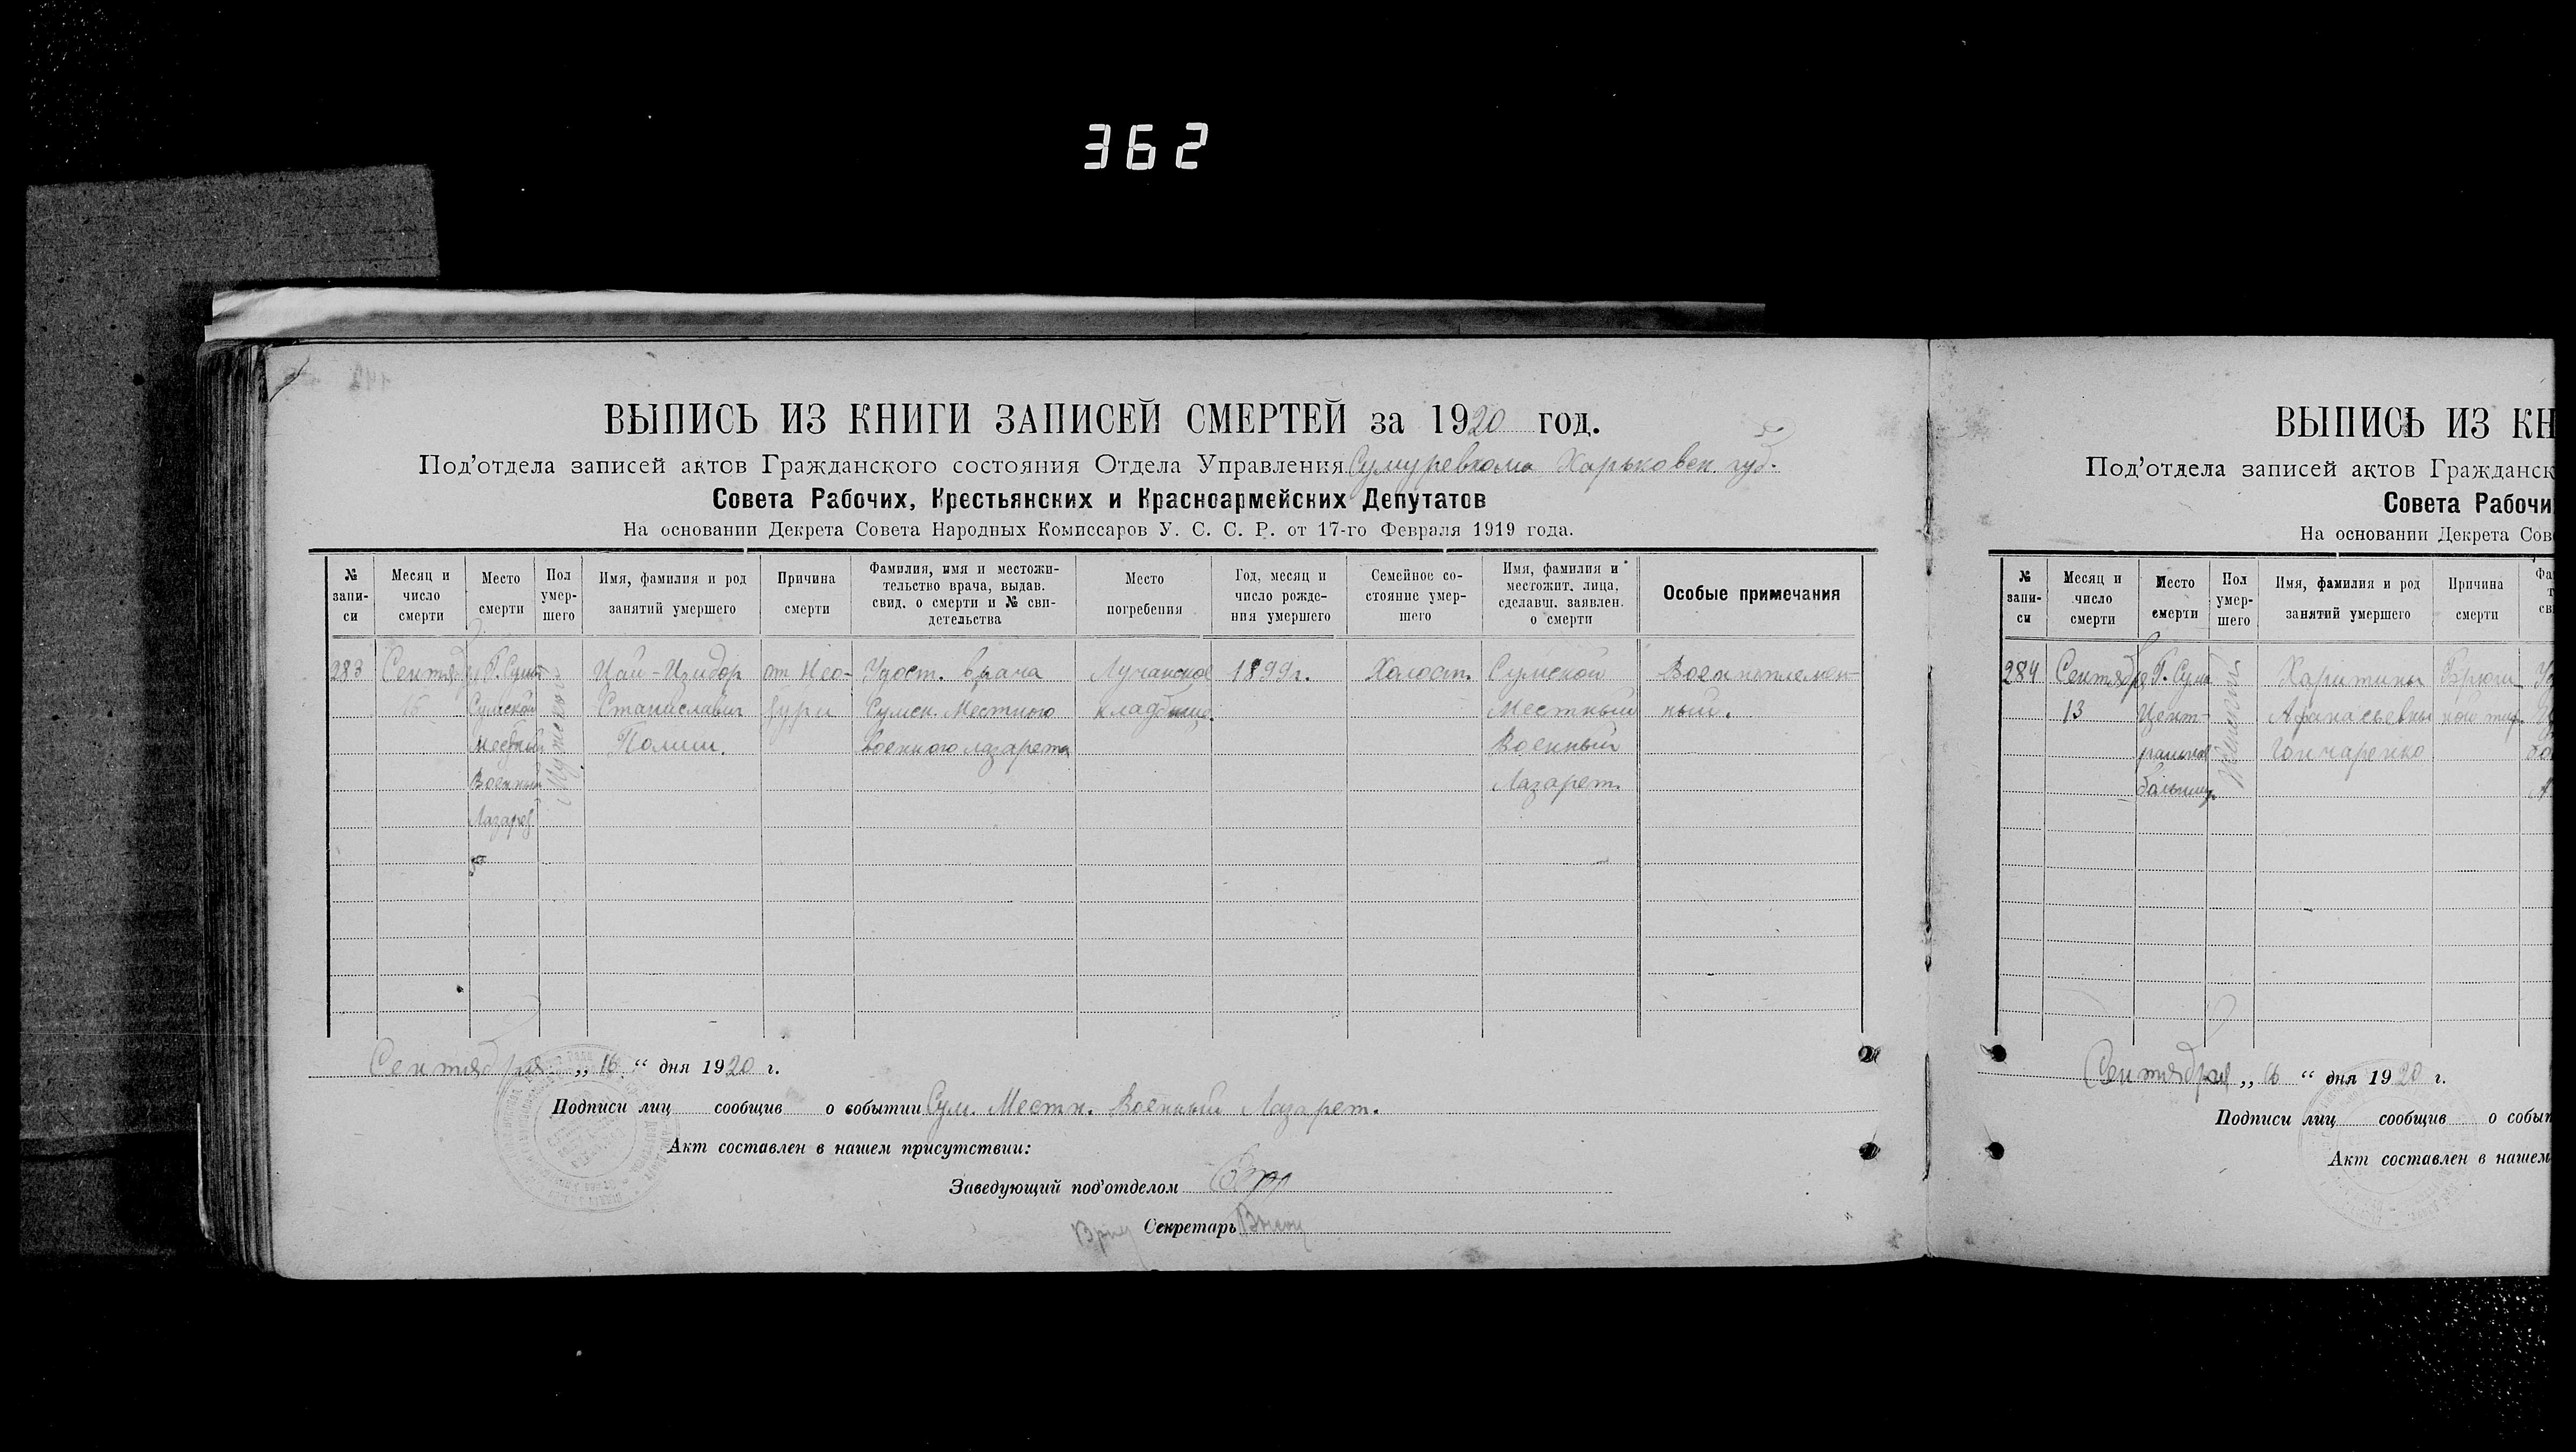 362
ВЫПИСЬ ИЗ КНИГИ ЗАПИСЕЙ СМЕРТЕЙ за 1920 год.
Под'отдела записей актов Гражданского состояния Отдела Управления Сумуревкома Харьковск. губ.
Совета Рабочих, Крестьянских и Красноармейских Депутатов
На основании Декрета Совета Народных Комиссаров У. С. С. Р. от 17-го Февраля 1919 года.
№ запи-си
Месяц и число смерти
Место смерти
Пол умер-шего
Имя, фамилия и род занятий умершего
Причина смерти
Фамилия, имя и местожи-тельство врача, выдав. свид. о смерти и № сви-детельства
Место погребения
Год, месяц и число рожде-ния умершего
Семейное со-стояние умер-шего
Имя, фамилия и местожит. лица, сделавш. заявлен. о смерти
Особые примечания
283
Сентяб
16
Г. Сумы
Сумской
местный
Военный
Лазарет
Мужской
Цай-Изидор
Станиславич
Полши.
Удост. врача
Сумск. Местного
Военного лазарета
Лучанское
кладбище.
1899г.
Холост.
Сумской
Местный
Военный
Лазарет.
Военнопленен-
ный.
Сентября „16“ дня 1920 г.
Подписи лиц сообщив о событии Сум. Местн. Военный Лазарет.
Акт составлен в нашем присутствии:
Заведующий под'отделом
Секретарь
ВЫПИСЬ ИЗ КН
Под'отдела записей актов Гражданск
Совета Рабочи
На основании Декрета Сов
№ запи-си
Месяц и число смерти
Место смерти
Пол умер-шего
Имя, фамилия и род занятий умершего
Причина смерти
284
Сентября
13
Г. Сумы
Цент-
ральной
больниц.
Женский
Харитины
Афанасьевны
Гончаренко
Брюш-
ной тиф.
Сентября „16“ дня 1920 г.
Подписи лиц сообщив о событ
Акт составлен в нашем